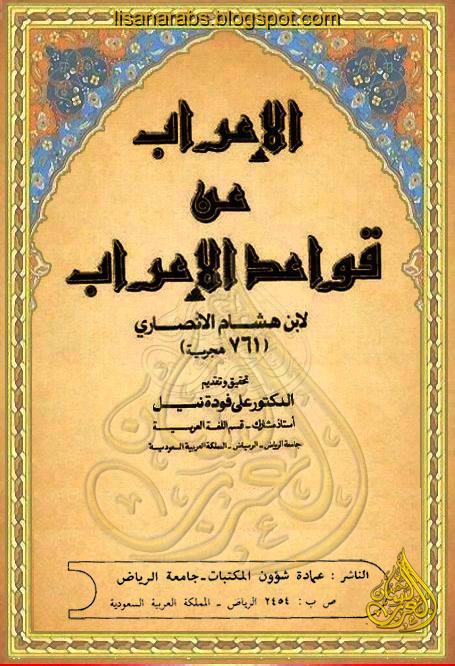 lisanarabs.blogspot.com
الإعراب
عن
قواعد الإعراب
لابن هشام الانصاري
(٧٦١ هجرية)
تحقيق وتقديم
الدكتور على فودة نيل
أستاذ مشارك - قسم اللغة العربية
جامعة الرياض - الرياض - المملكة العربية السعودية
الناشر : عمادة شؤون المكتبات - جامعة الرياض
ص ب : ٢٤٥٤ الرياض - المملكة العربية السعودية